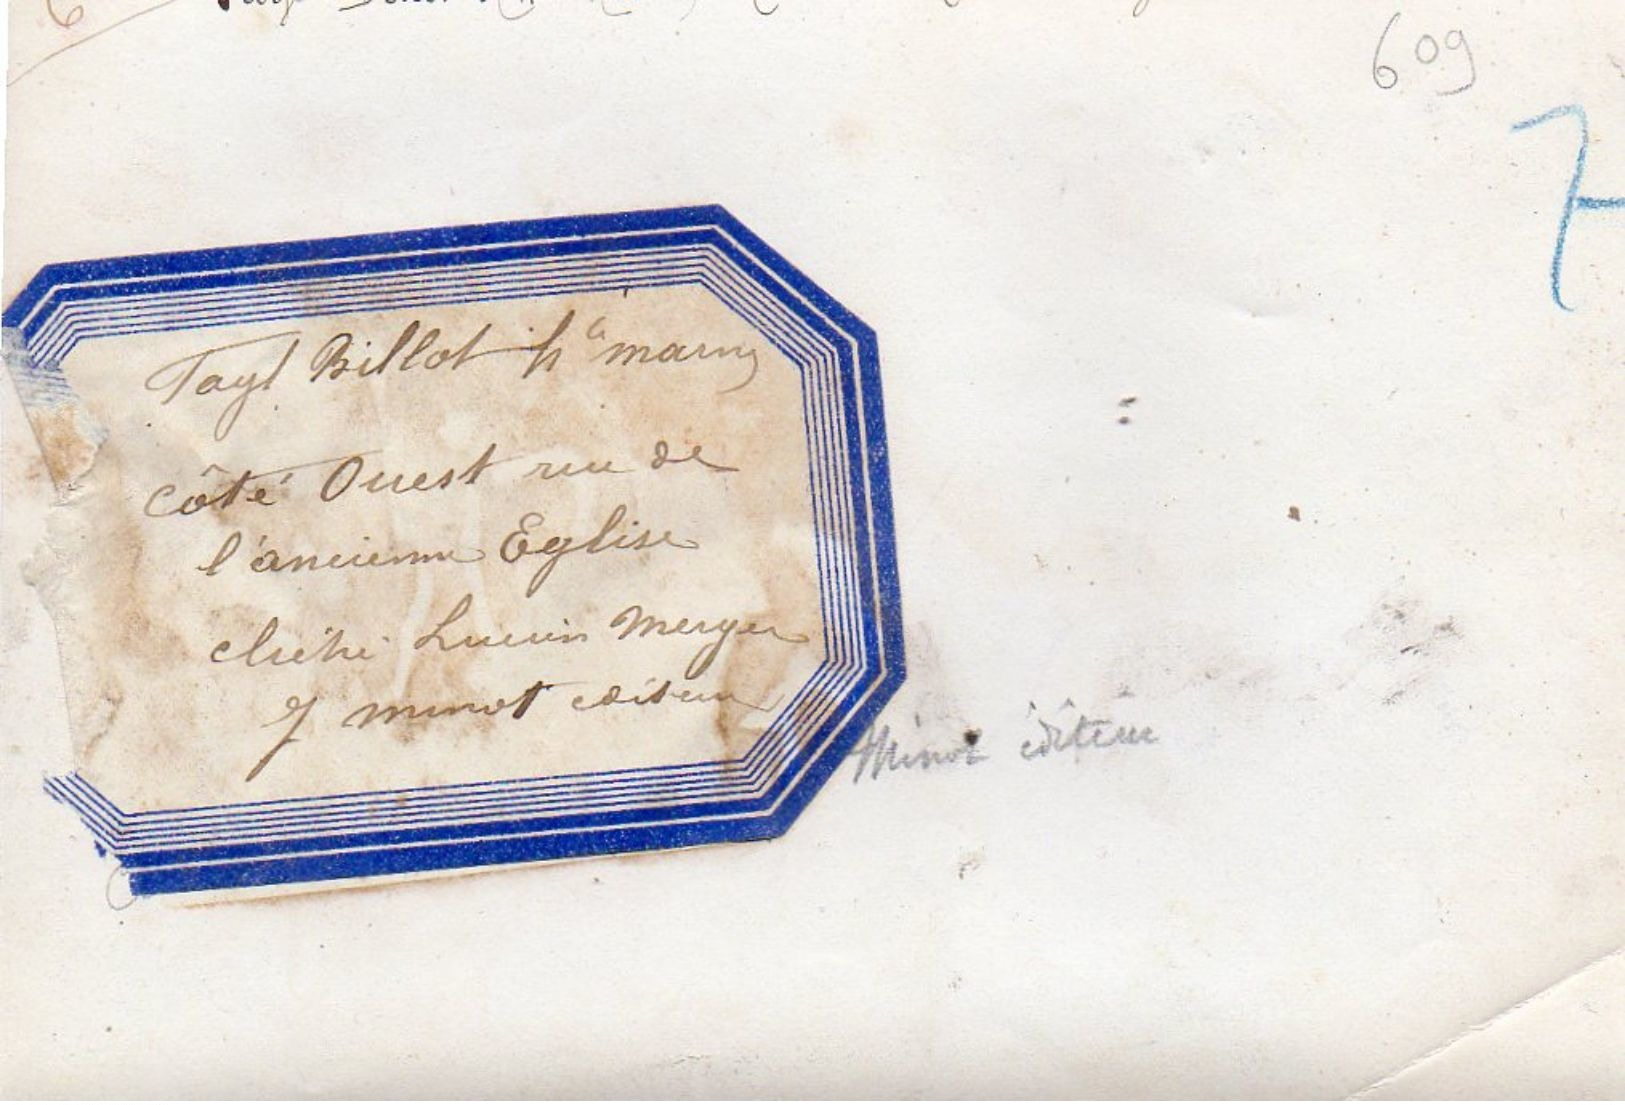 609
7
Tayl Billot hte marne
côté Ouest rue de
l'ancienne Eglise
cliché Lucien Merger
J minot editeur
Minot éditeur